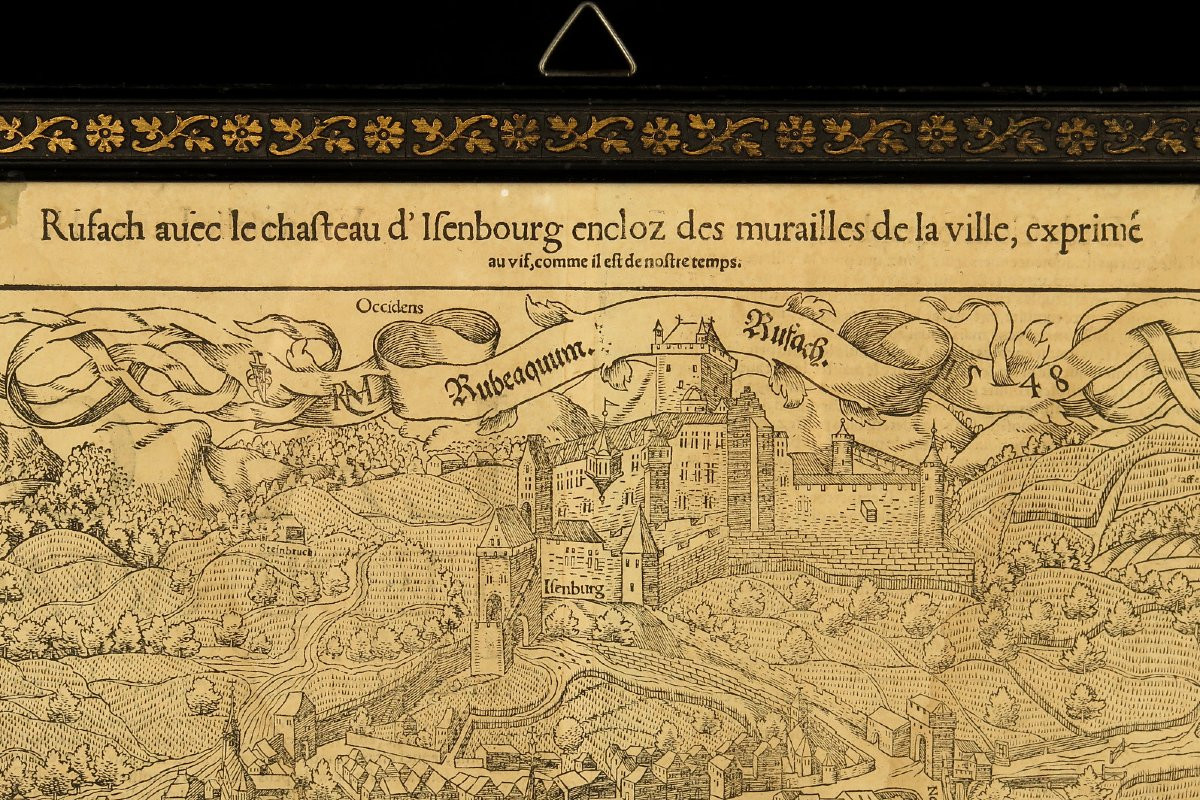 Rufach auec le chaſteau d' Iſenbourg encloz des murailles de la ville, exprimé
au vif, comme il eſt de noſtre temps.
Occidens
Rubeaquum. Rufach.
RM
1548
Steinbruch
Iſenburg